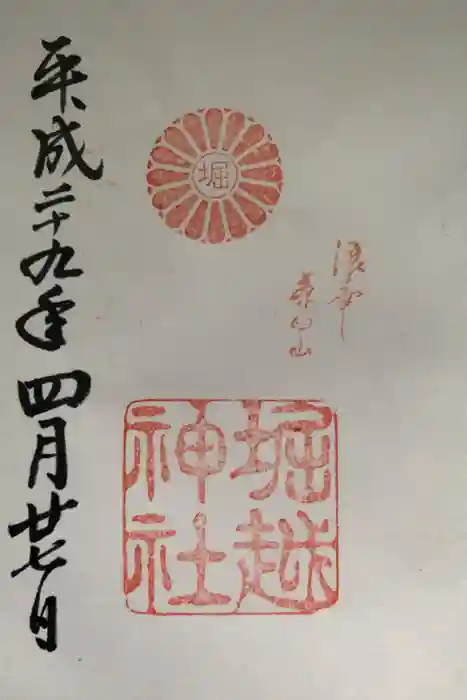 堀
浪華
茶臼山
堀越
神社
平成二十九年四月廿七日